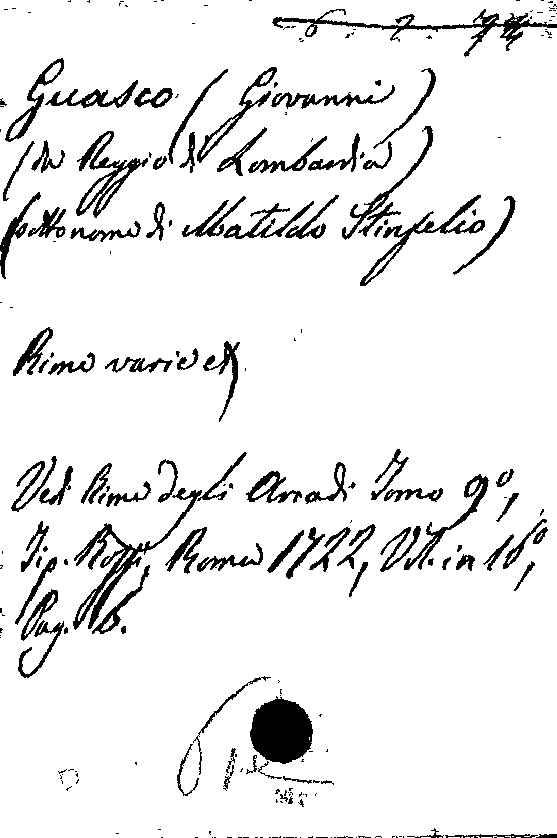 6. 2. 74
Guasco (Giovanni)
(da Reggio di Lombardia)
(sottonome di Matildo Stinfelio)
Rime varie
Vedi Rime degli Arcadi Tomo 9º,
Tip. Rossi, Roma 1722, Vol. in 16º,
Pag. 6.